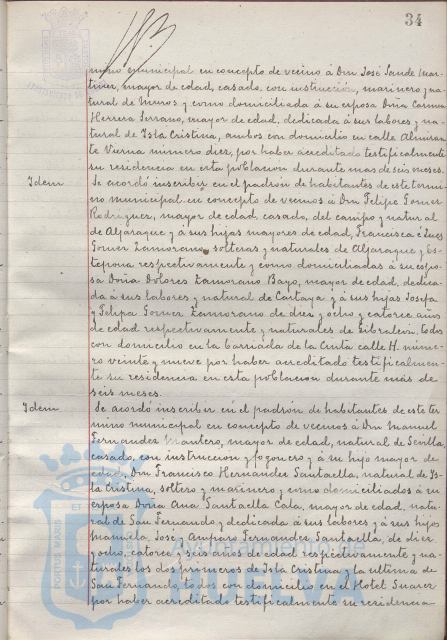 34
mino municipal en concepto de vecino á Don José Sande Mar-
tinez, mayor de edad, casado, con instrucción, marinero y na-
tural de Muros y como domiciliada á su esposa Doña Carmen
Herrera Serrano, mayor de edad, dedicada á sus labores y na-
tural de Isla Cristina, ambos con domicilio en calle Almiran-
te Vierna número diez, por haber acreditado testificalmente
su residencia en esta poblacion durante mas de seis meses.
Idem
Se acordó inscribir en el padrón de habitantes de este termi-
no municipal en concepto de vecinos á Don Felipe Gomez
Rodriguez, mayor de edad, casado, del campo y natural
de Aljaraque y á sus hijas mayores de edad, Francisca é Ines
Gomez Zamorano, solteras y naturales de Aljaraque y Es-
tepona respectivamente y como domiciliadas á su espo-
sa Doña Dolores Zamorano Bayo, mayor de edad, dedica-
da á sus labores y natural de Cartaya y á sus hijas Josefa
y Felipa Gomez Zamorano de diez y ocho y catorce años
de edad respectivamente y naturales de Gibraleon, todos
con domicilio en la barriada de la Cinta calle H. núme-
ro veinte y nueve por haber acreditado testificalmen-
te su residencia en esta poblacion durante más de
seis meses.
Idem
Se acordó inscribir en el padrón de habitantes de este ter
mino municipal en concepto de vecinos á Don Manuel
Fernandez Mantero, mayor de edad, natural de Sevilla,
casado, con instruccion y fogonero y á su hijo mayor de
edad, Don Francisco Hernandez Santaella, natural de Is-
la Cristina, soltero y marinero y como domiciliados á su
esposa Doña Ana Santaella Cala, mayor de edad, natu-
ral de San Fernando y dedicada á sus labores y á sus hijos
Manuela, José y Amparo Fernandez Santaella, de diez
y ocho, catorce y seis años de edad respectivamente y na-
turales los dos primeros de Isla Cristina y la ultima de
San Fernando, todos con domicilio en el Hotel Suarez
por haber acreditado testificalmente su residencia
PORTUS MARIS
HUELVA